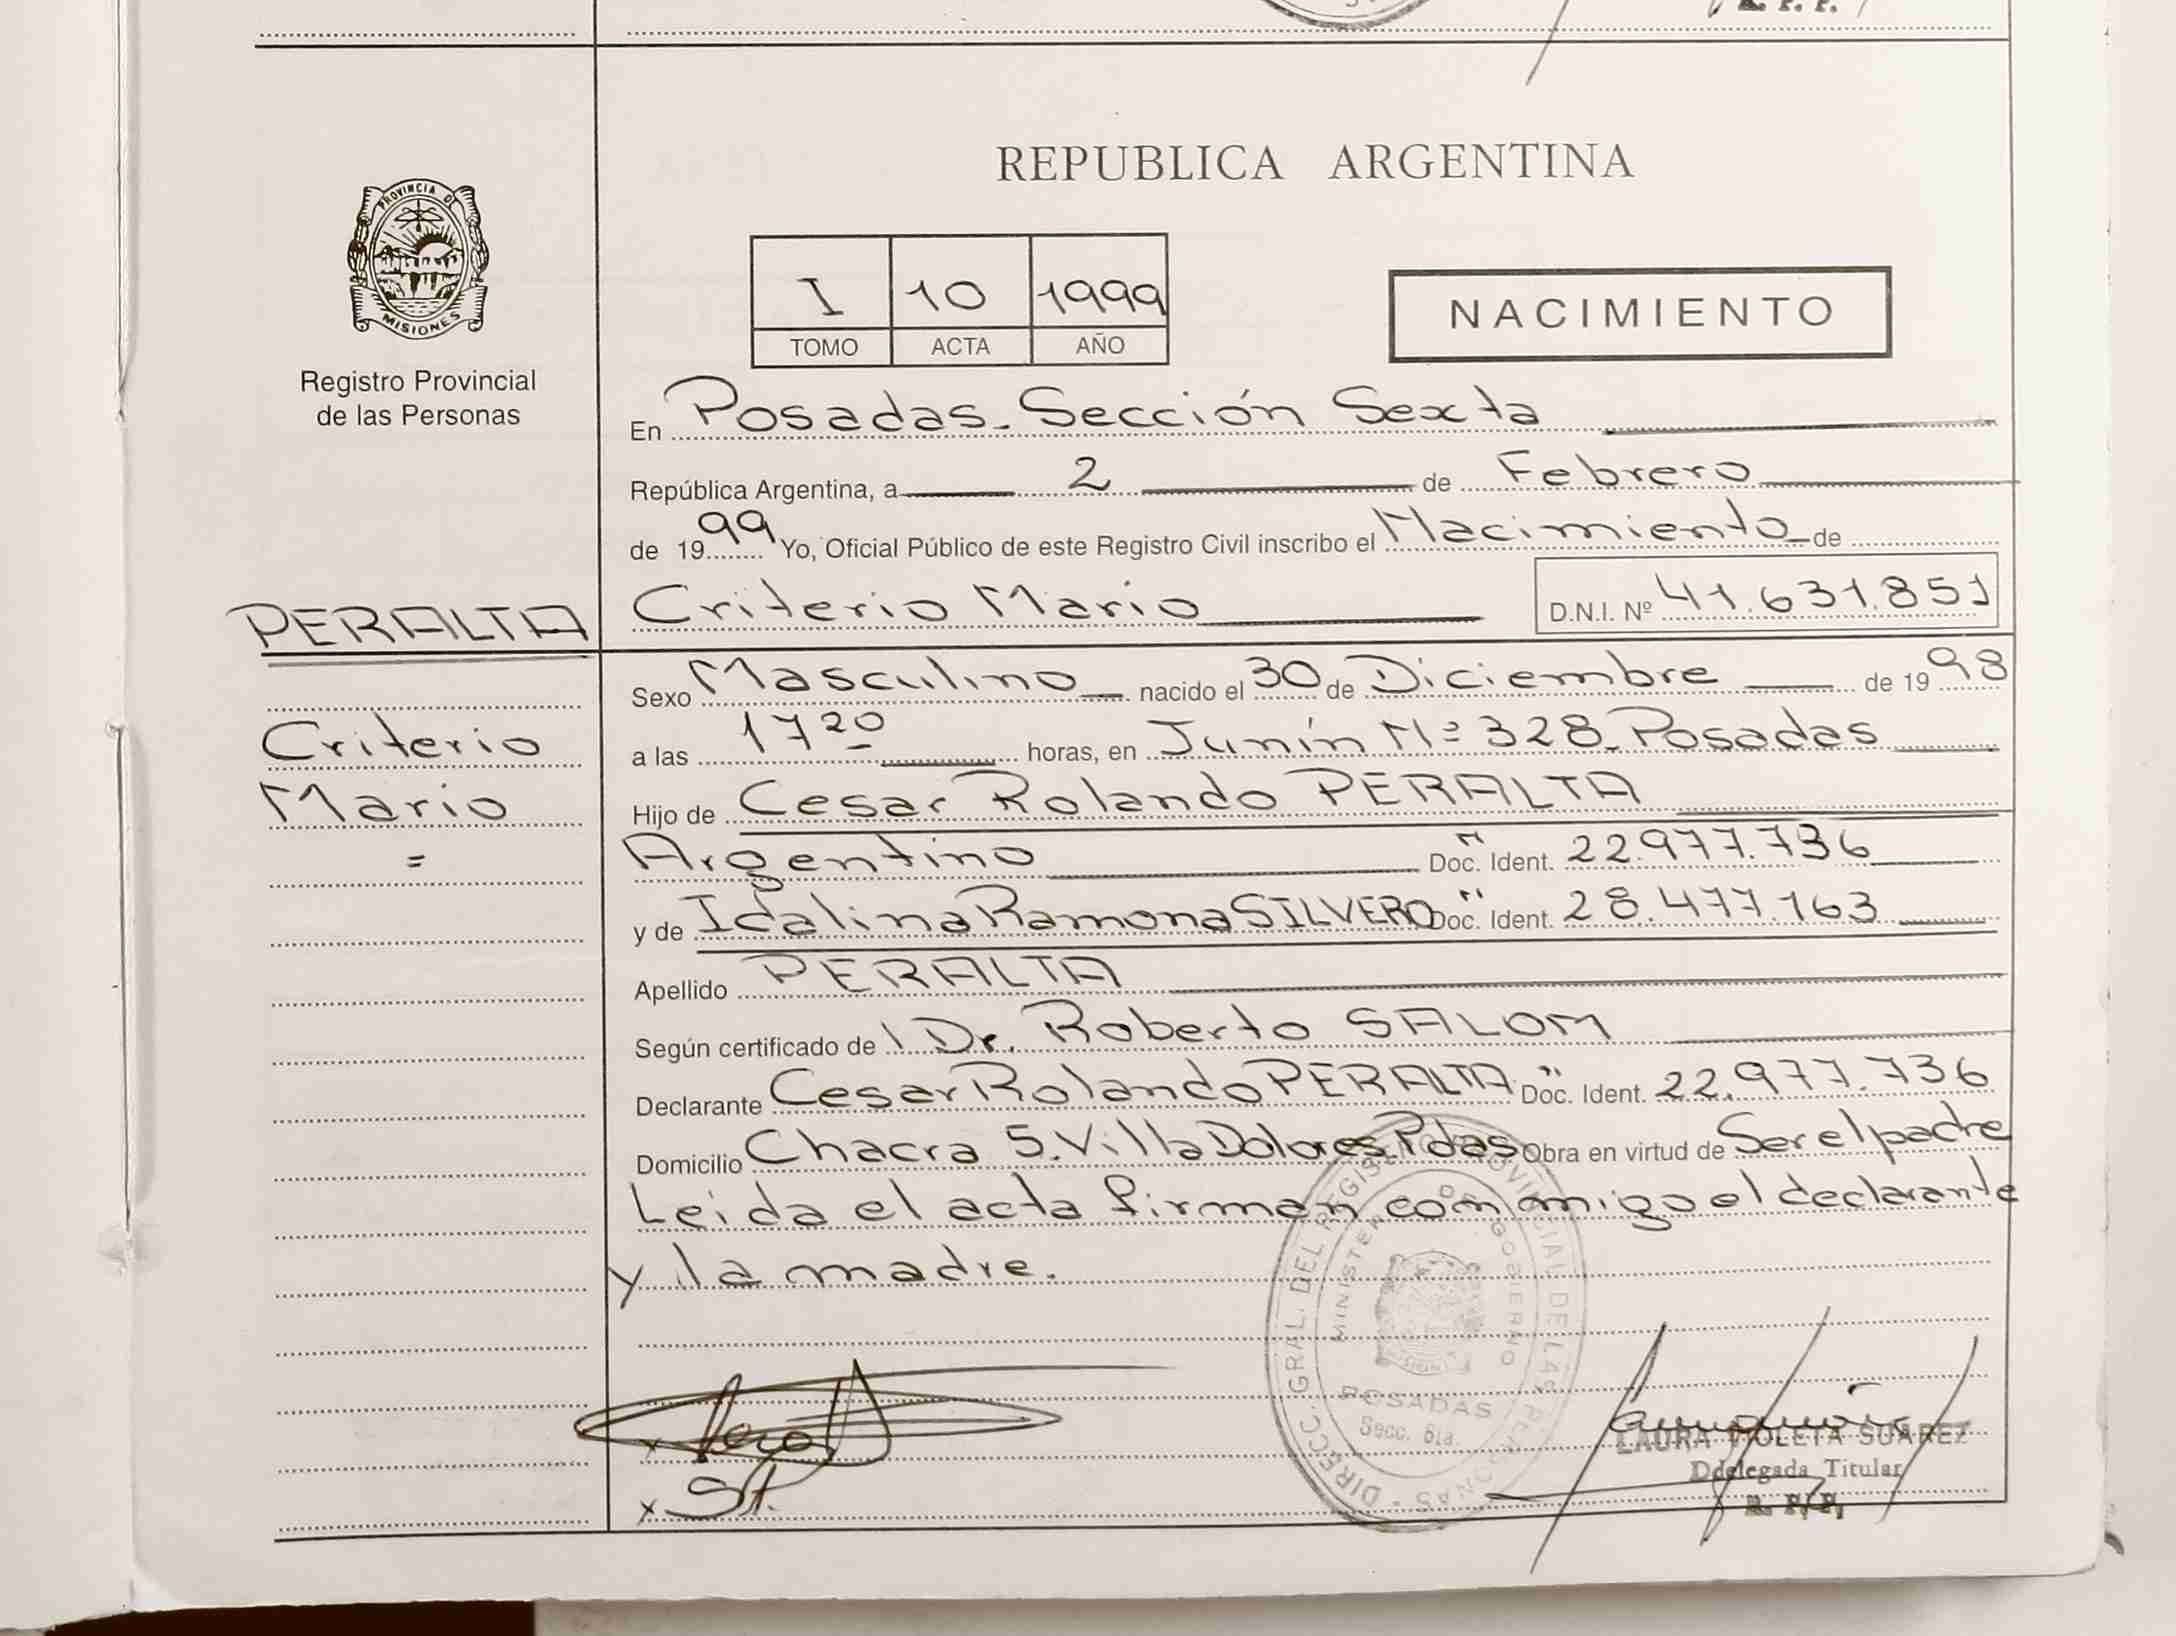 R. P. P.
REPUBLICA ARGENTINA
PROVINCIA DE
MISIONES
Registro Provincial
de las Personas
I 10 1999
TOMO ACTA AÑO
NACIMIENTO
En Posadas. Sección Sexta
República Argentina, a 2 de Febrero
de 1999 Yo, Oficial Público de este Registro Civil inscribo el Nacimiento de
PERALTA
Criterio Mario D.N.I. Nº 41.631.851
Sexo Masculino nacido el 30 de Diciembre de 1998
Criterio
Mario
=
a las 17 20 horas, en Junín Nº 328. Posadas
Hijo de Cesar Rolando PERALTA
Argentino Doc. Ident. " 22.977.736
y de Idalina Ramona SILVERO Doc. Ident. " 28.477.163
Apellido PERALTA
Según certificado de Dr. Roberto SALOM
Declarante Cesar Rolando PERALTA Doc. Ident. " 22.977.736
Domicilio Chacra 5. Villa Dolores. Pdas Obra en virtud de Ser el padre
Leida el acta firman conmigo el declarante
y la madre.
DIRECC. GRAL. DEL REGISTRO PROVINCIAL DE LAS PERSONAS
MINISTERIO DE GOBIERNO
POSADAS
Secc. 6ta.
x
x
LAURA VIOLETA SUAREZ
Ddelegada Titular
R. P. P.